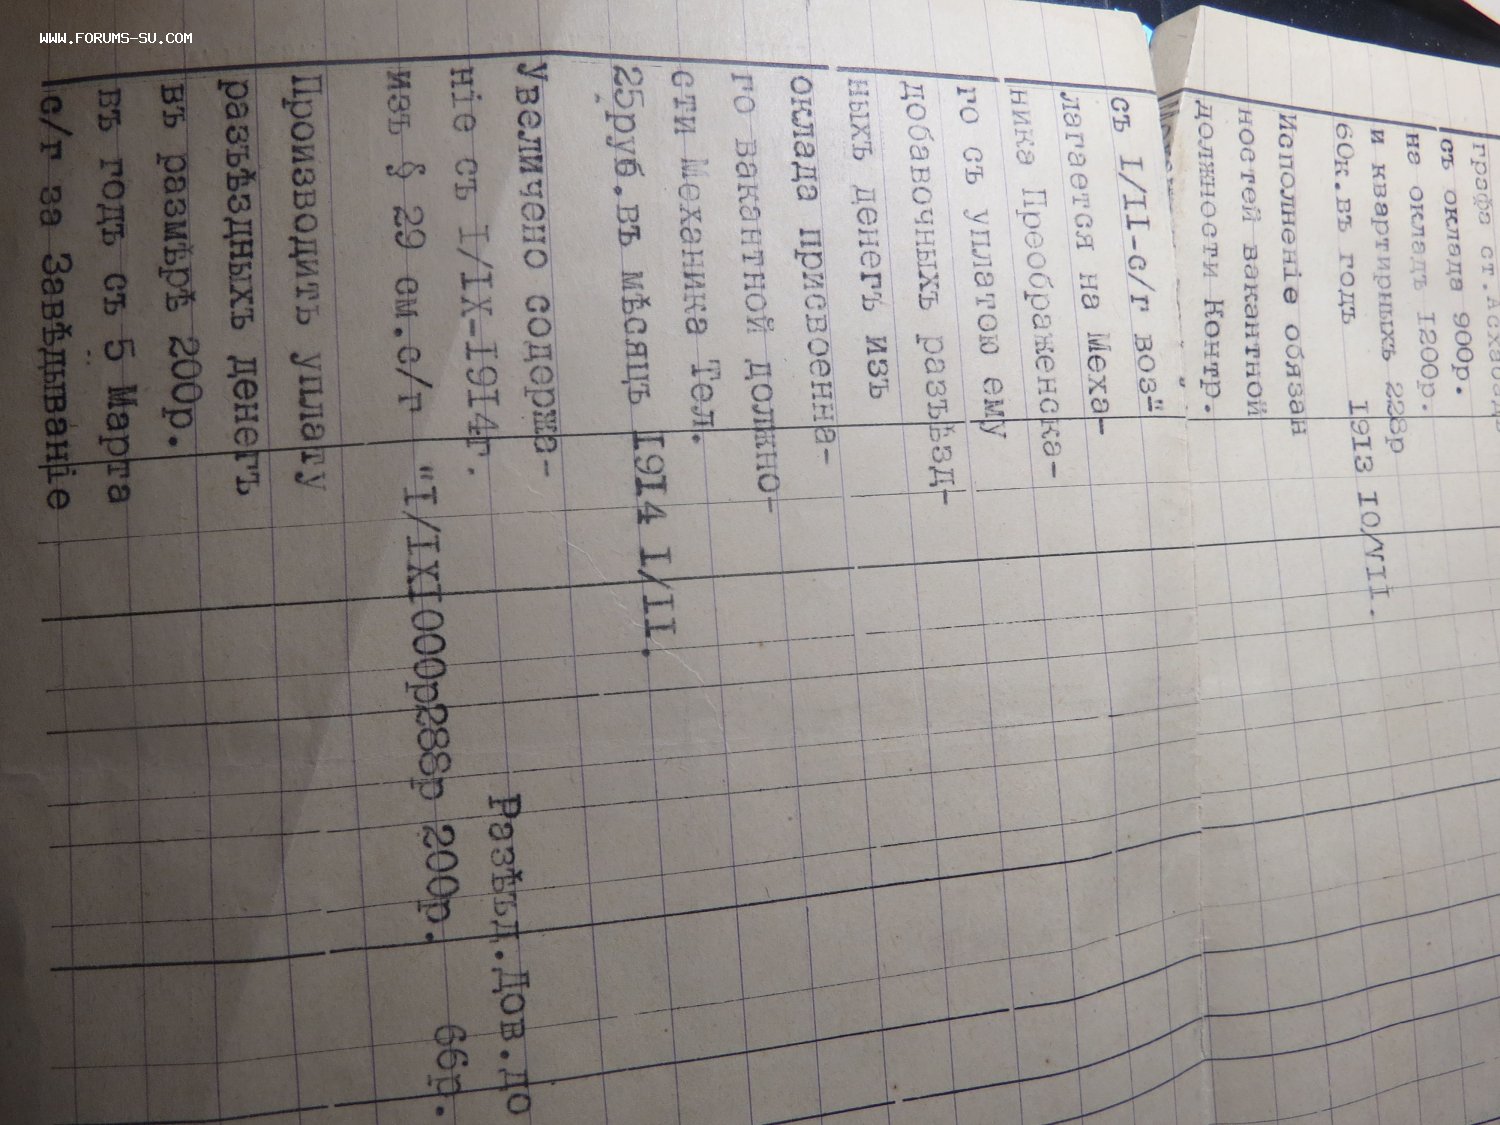 WWW.FORUMS-SU.COM
графа ст.Асхабадъ
съ оклада 900р.
на окладъ 1200р.
и квартирныхъ 228р
60к.въ годъ 1913 10/VII.
Исполненіе обязан
ностей вакантной
должности Контр.
съ I/II-с/г воз"
лагается на Меха-
ника Преображенска-
го съ уплатою ему
добавочныхъ разъѣзд-
ныхъ денегъ изъ
оклада присвоенна-
го вакантной должно-
сти Механика Тел.
25руб.въ мѣсяцъ 1914 I/II.
Увеличено содержа-
ніе съ I/IX-1914г. Разъѣзд.Дов.до
изъ § 29 см.с/г "I/IX1000р288р 200р. 66р.
Производить уплату
разъѣздныхъ денегъ
въ размѣрѣ 200р.
въ годъ съ 5 Марта
с/г за Завѣдываніе